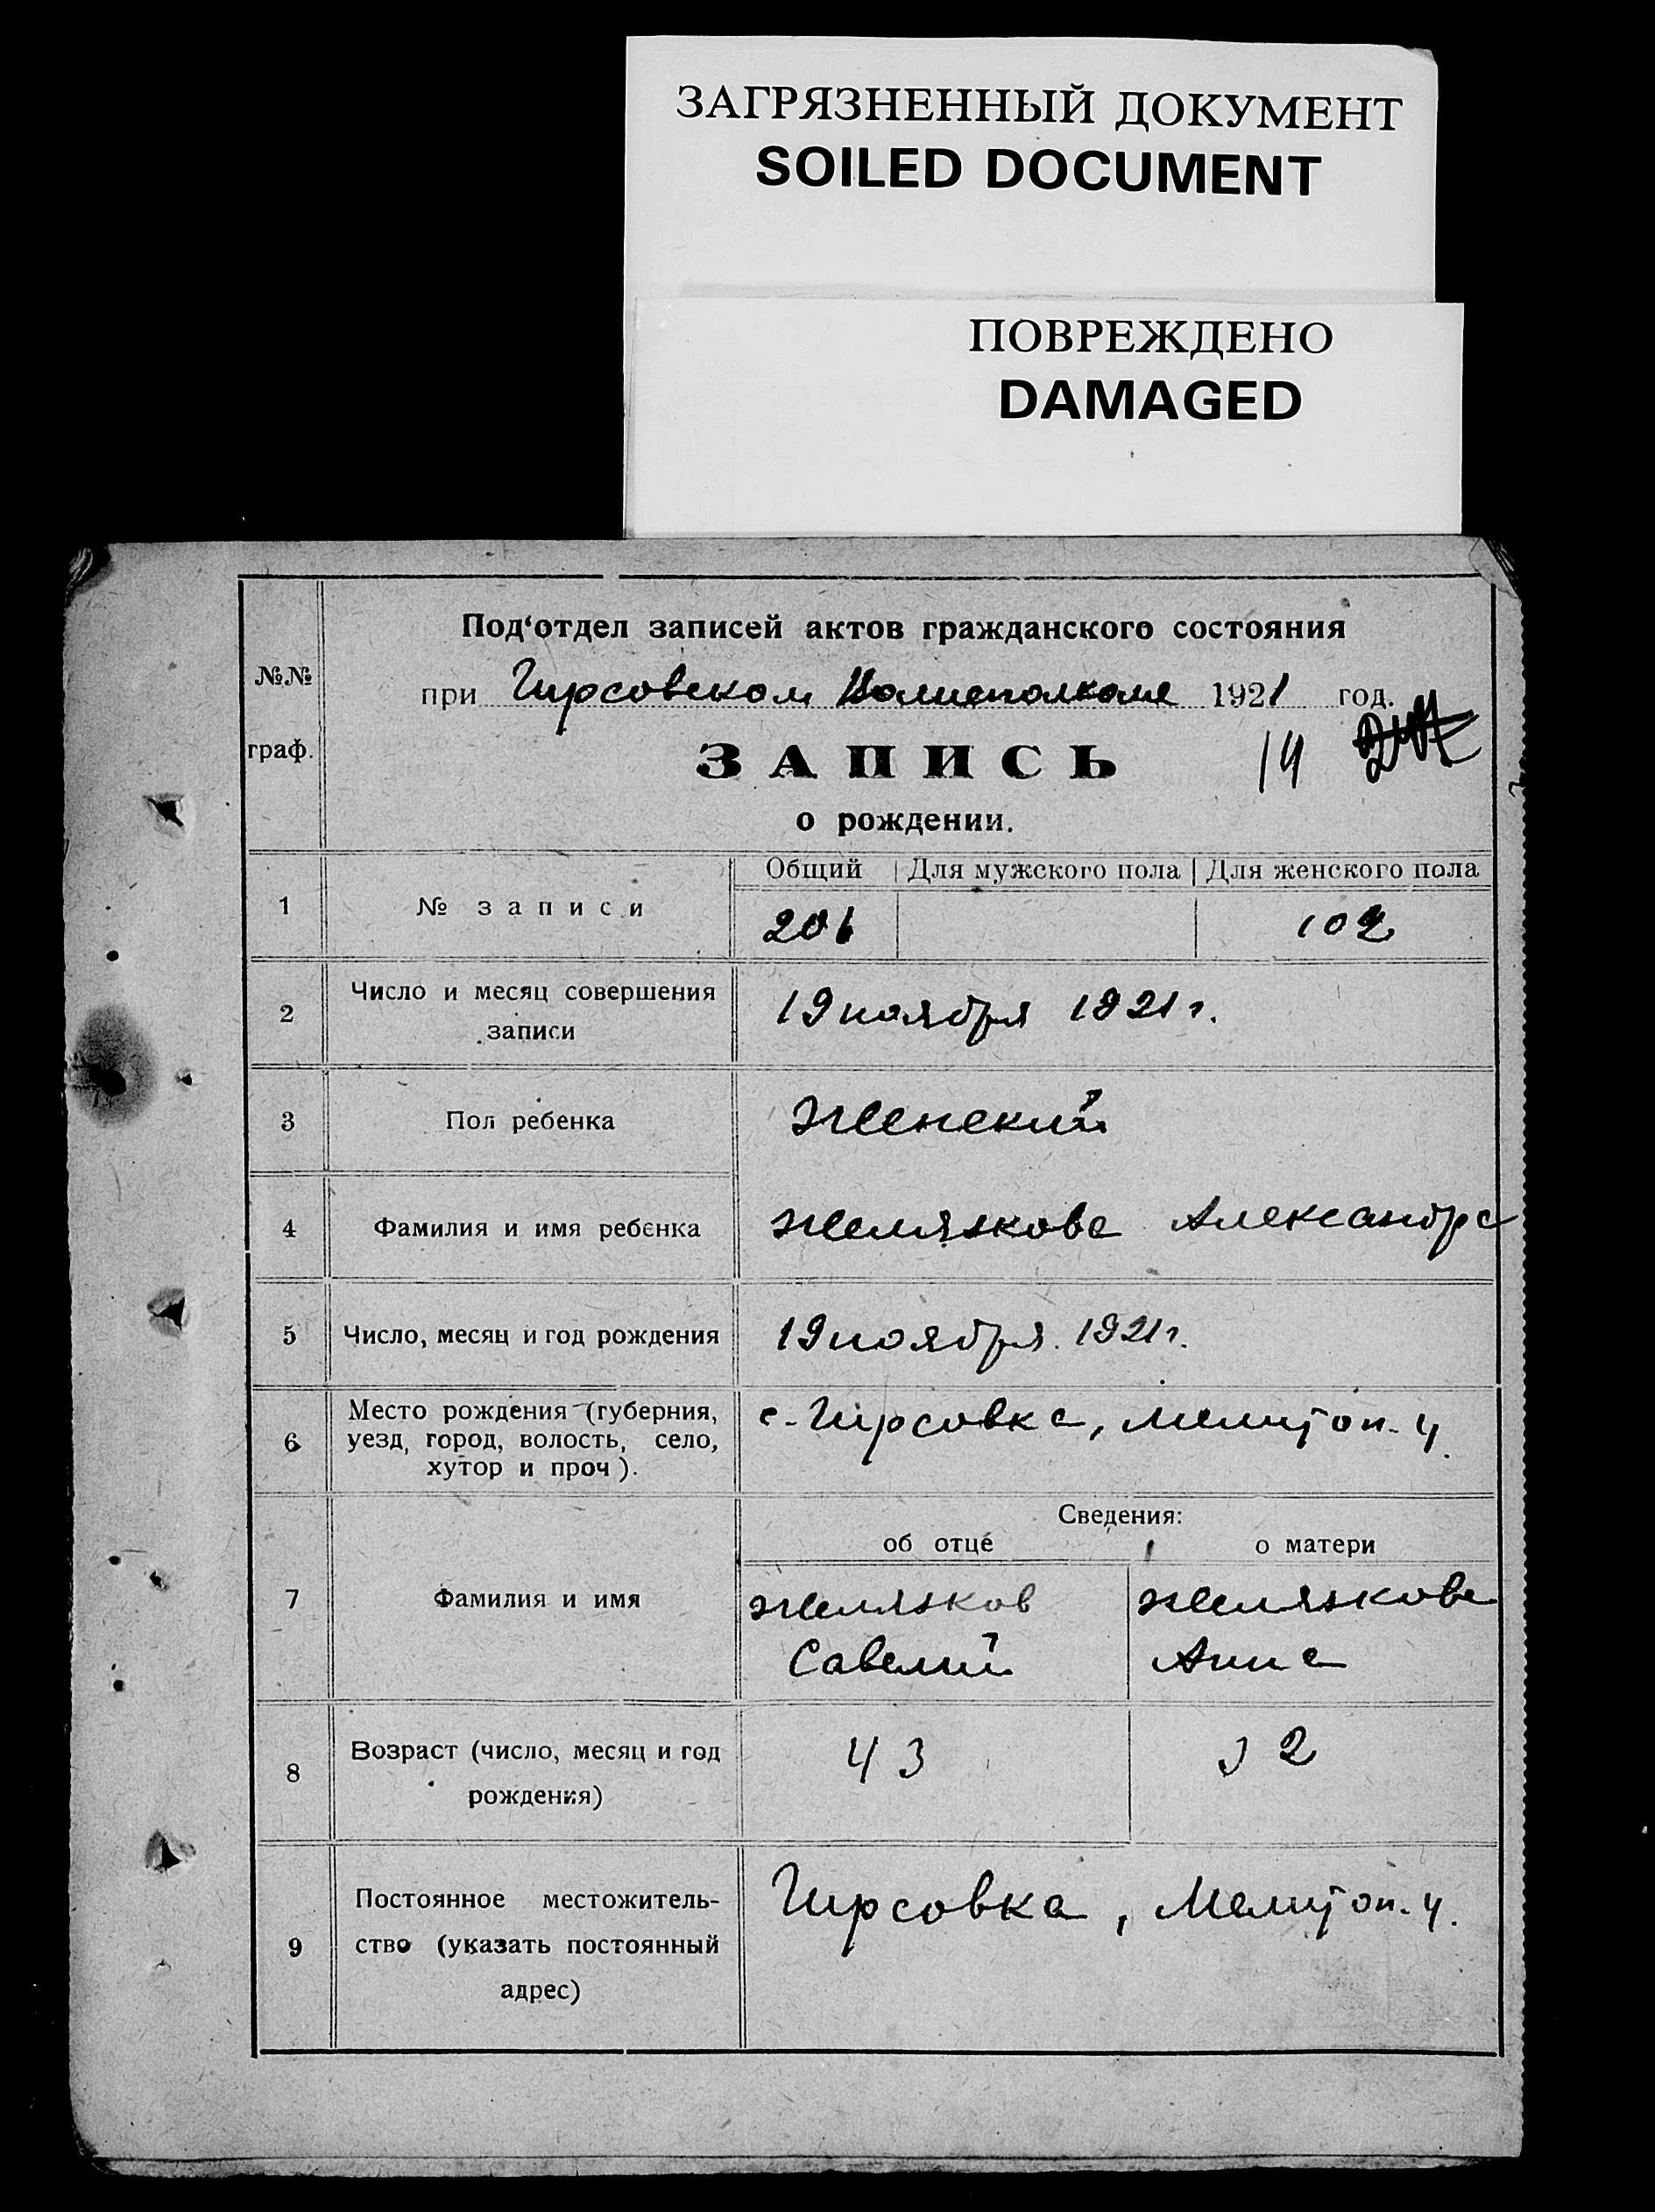 ЗАГРЯЗНЕННЫЙ ДОКУМЕНТ
SOILED DOCUMENT
ПОВРЕЖДЕНО
DAMAGED
№№
граф.
Под‘отдел записей актов гражданского состояния
при Гирсовском Волисполкоме 1921 год.
ЗАПИСЬ 14
о рождении.
Общий Для мужского пола Для женского пола
1 № записи 206 102
2 Число и месяц совершения
записи
19 ноября 1921 г.
3 Пол ребенка Женский
4 Фамилия и имя ребенка Желязкова Александра
5 Число, месяц и год рождения 19 ноября. 1921 г.
6 Место рождения (губерния,
уезд, город, волость, село,
хутор и проч).
с. Гирсовка, Мелитоп. у.
Сведения:
об отце о матери
7 Фамилия и имя
Желязков Желязкова
Савелий Анна
8 Возраст (число, месяц и год
рождения)
43 32
9 Постоянное местожитель-
ство (указать постоянный
адрес)
Гирсовка, Мелитоп. у.